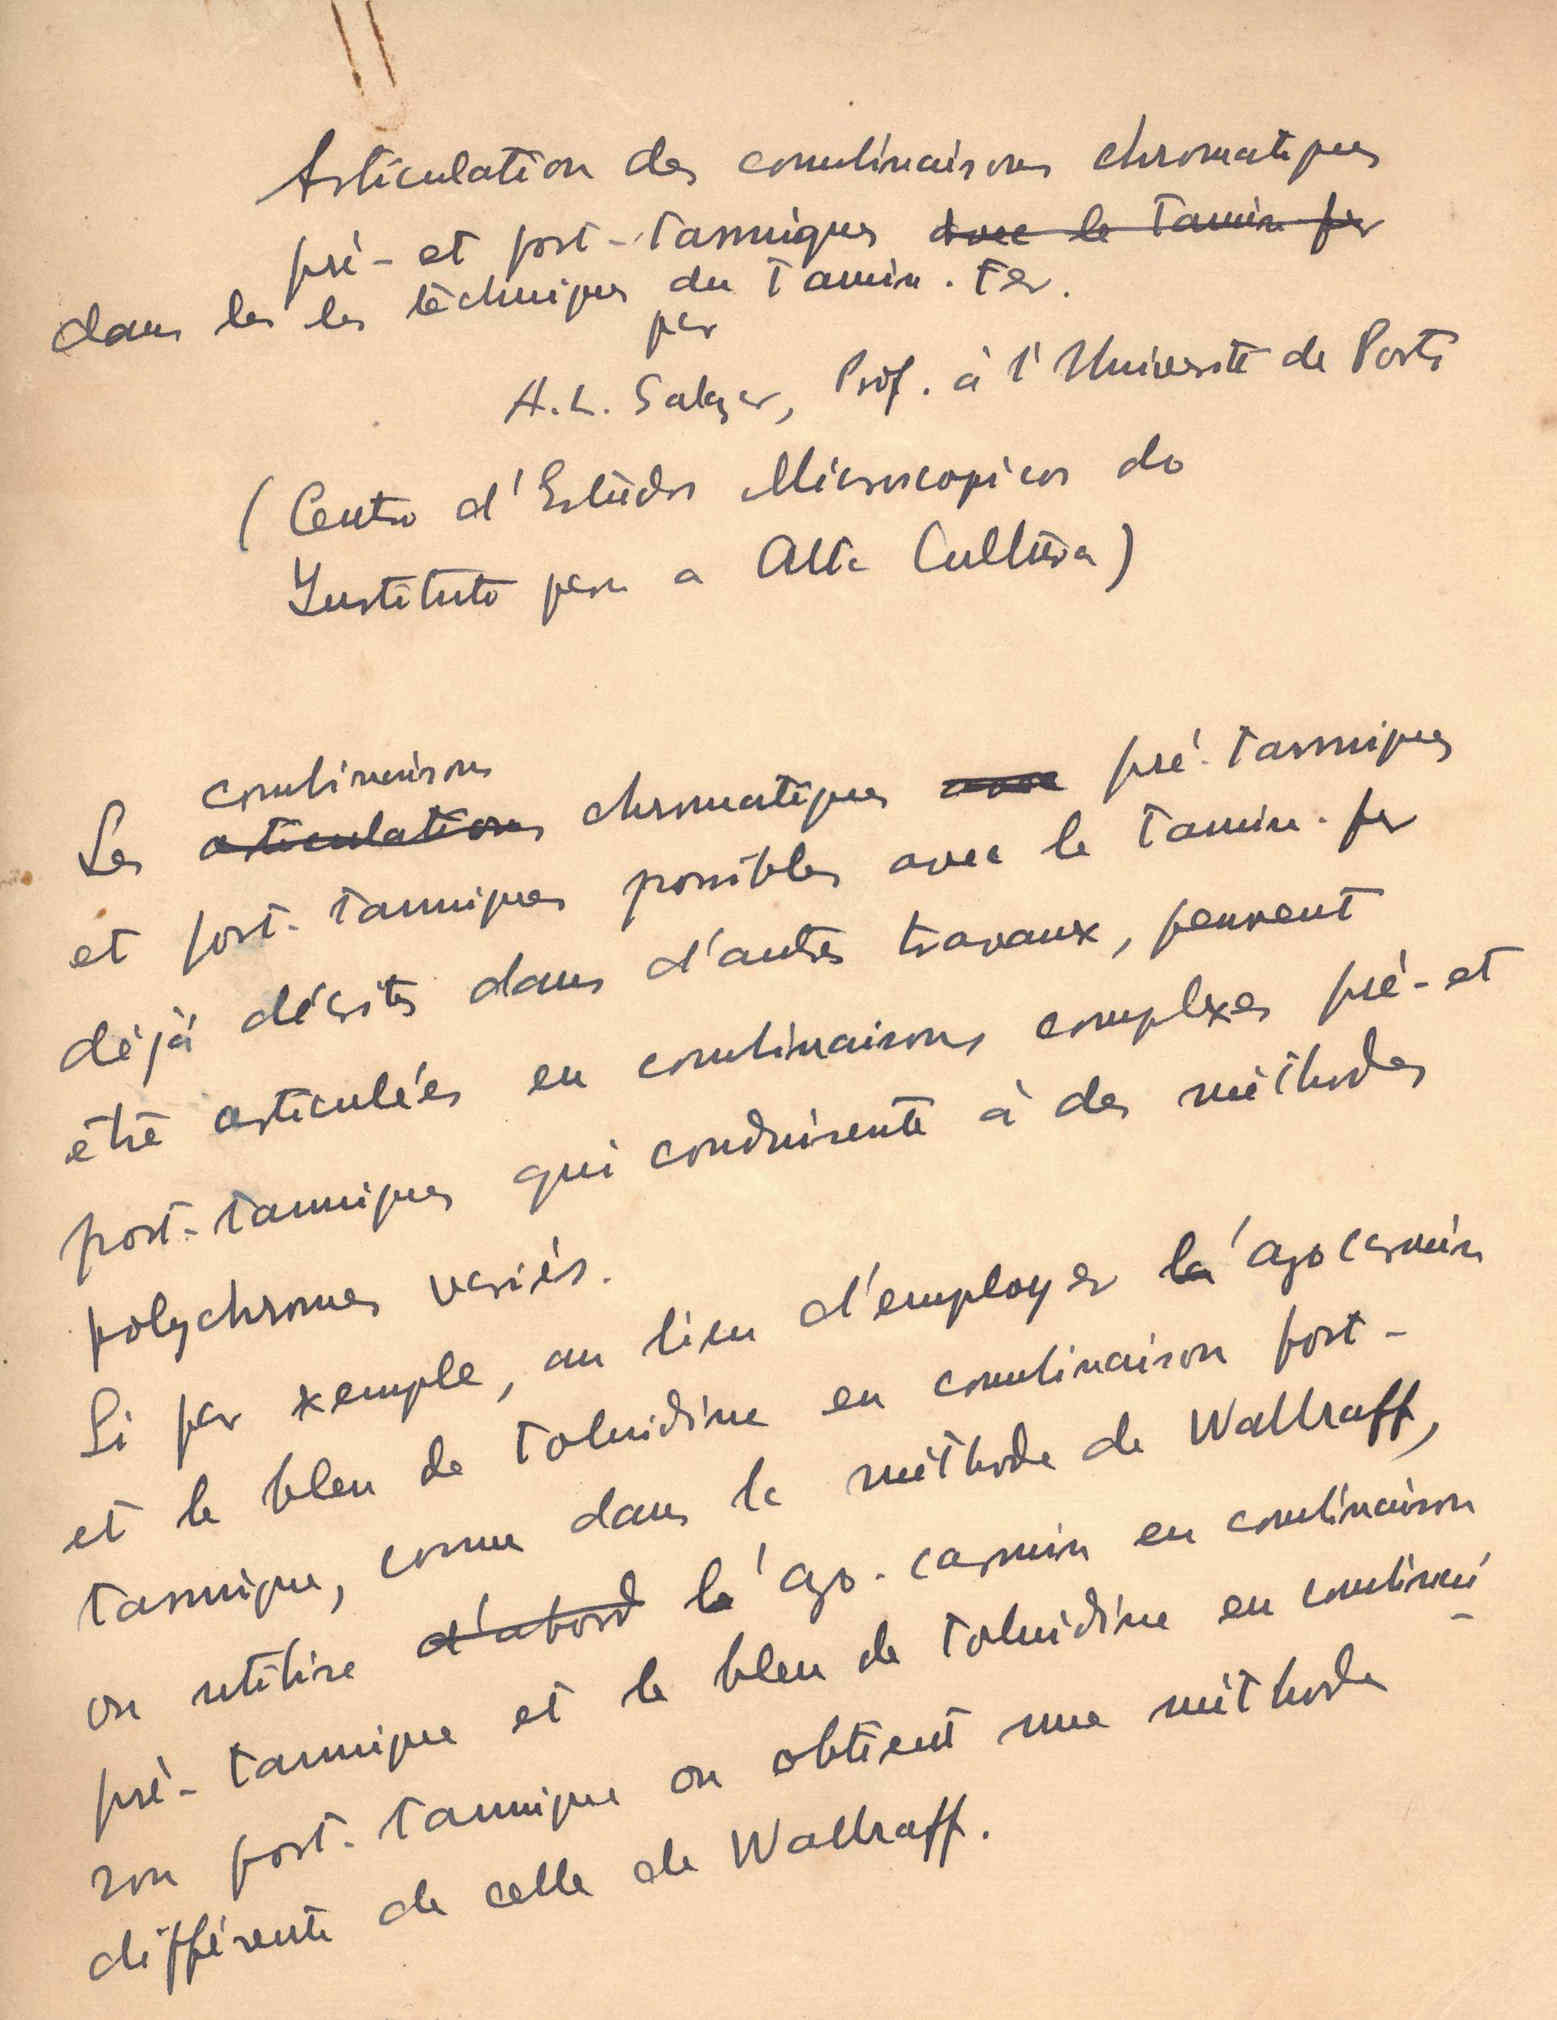 Articulation des combinaisons chromatiques
pré- et post-tanniques avec le tannin fer
dans les les techniques du Tannin-Fer.
par
A.L. Salazar, Prof. à l'Université de Porto
(Centro d'Estudos Microscopicos do
Instituto para a Alta Cultura)
combinaisons
Les articulations chromatiques avec pré-tanniques
et post-tanniques possibles avec le Tannin-fer
déjà décrites dans d'autres travaux, peuvent
être articulées en combinaisons complexes pré- et
post-tanniques qui conduisent à des méthodes
polychromes variés.
Si par exemple, au lieu d'employer l'azocarmin
et le bleu de Toluidine en combinaison post-
tannique, comme dans la méthode de Wallraff,
on utilise d'abord l'azo-carmin en combinaison
pré-tannique et le bleu de Toluidine en combinai-
son post-tannique on obtient une méthode
différente de celle de Wallraff.